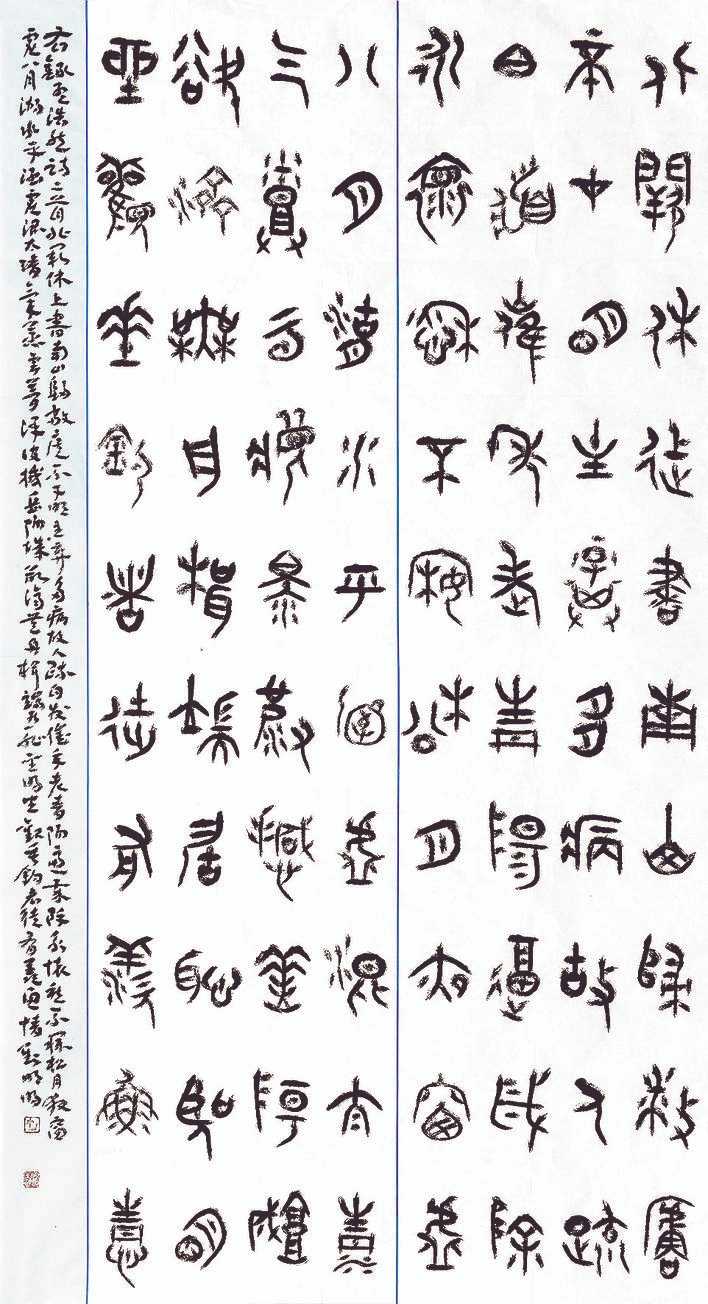 北闕休上書南山歸敝廬
不才明主棄多病故人疏
白髮催年老青陽逼歲除
永懷愁不寐松月夜窗虛
八月湖水平涵虛混太清
气蒸云夢澤波撼岳陽城
欲濟無舟楫端居恥聖明
坐觀垂釣者徒有羨魚情
右錄孟浩然詩二首北闕休上書南山歸敝廬不才明主棄多病故人疏白髮催年老青陽逼歲除永懷愁不寐松月夜窗
虛八月湖水平涵虛混太清氣蒸雲夢澤波撼岳陽城欲濟無舟楫端居恥聖明坐觀垂釣者徒有羨魚情